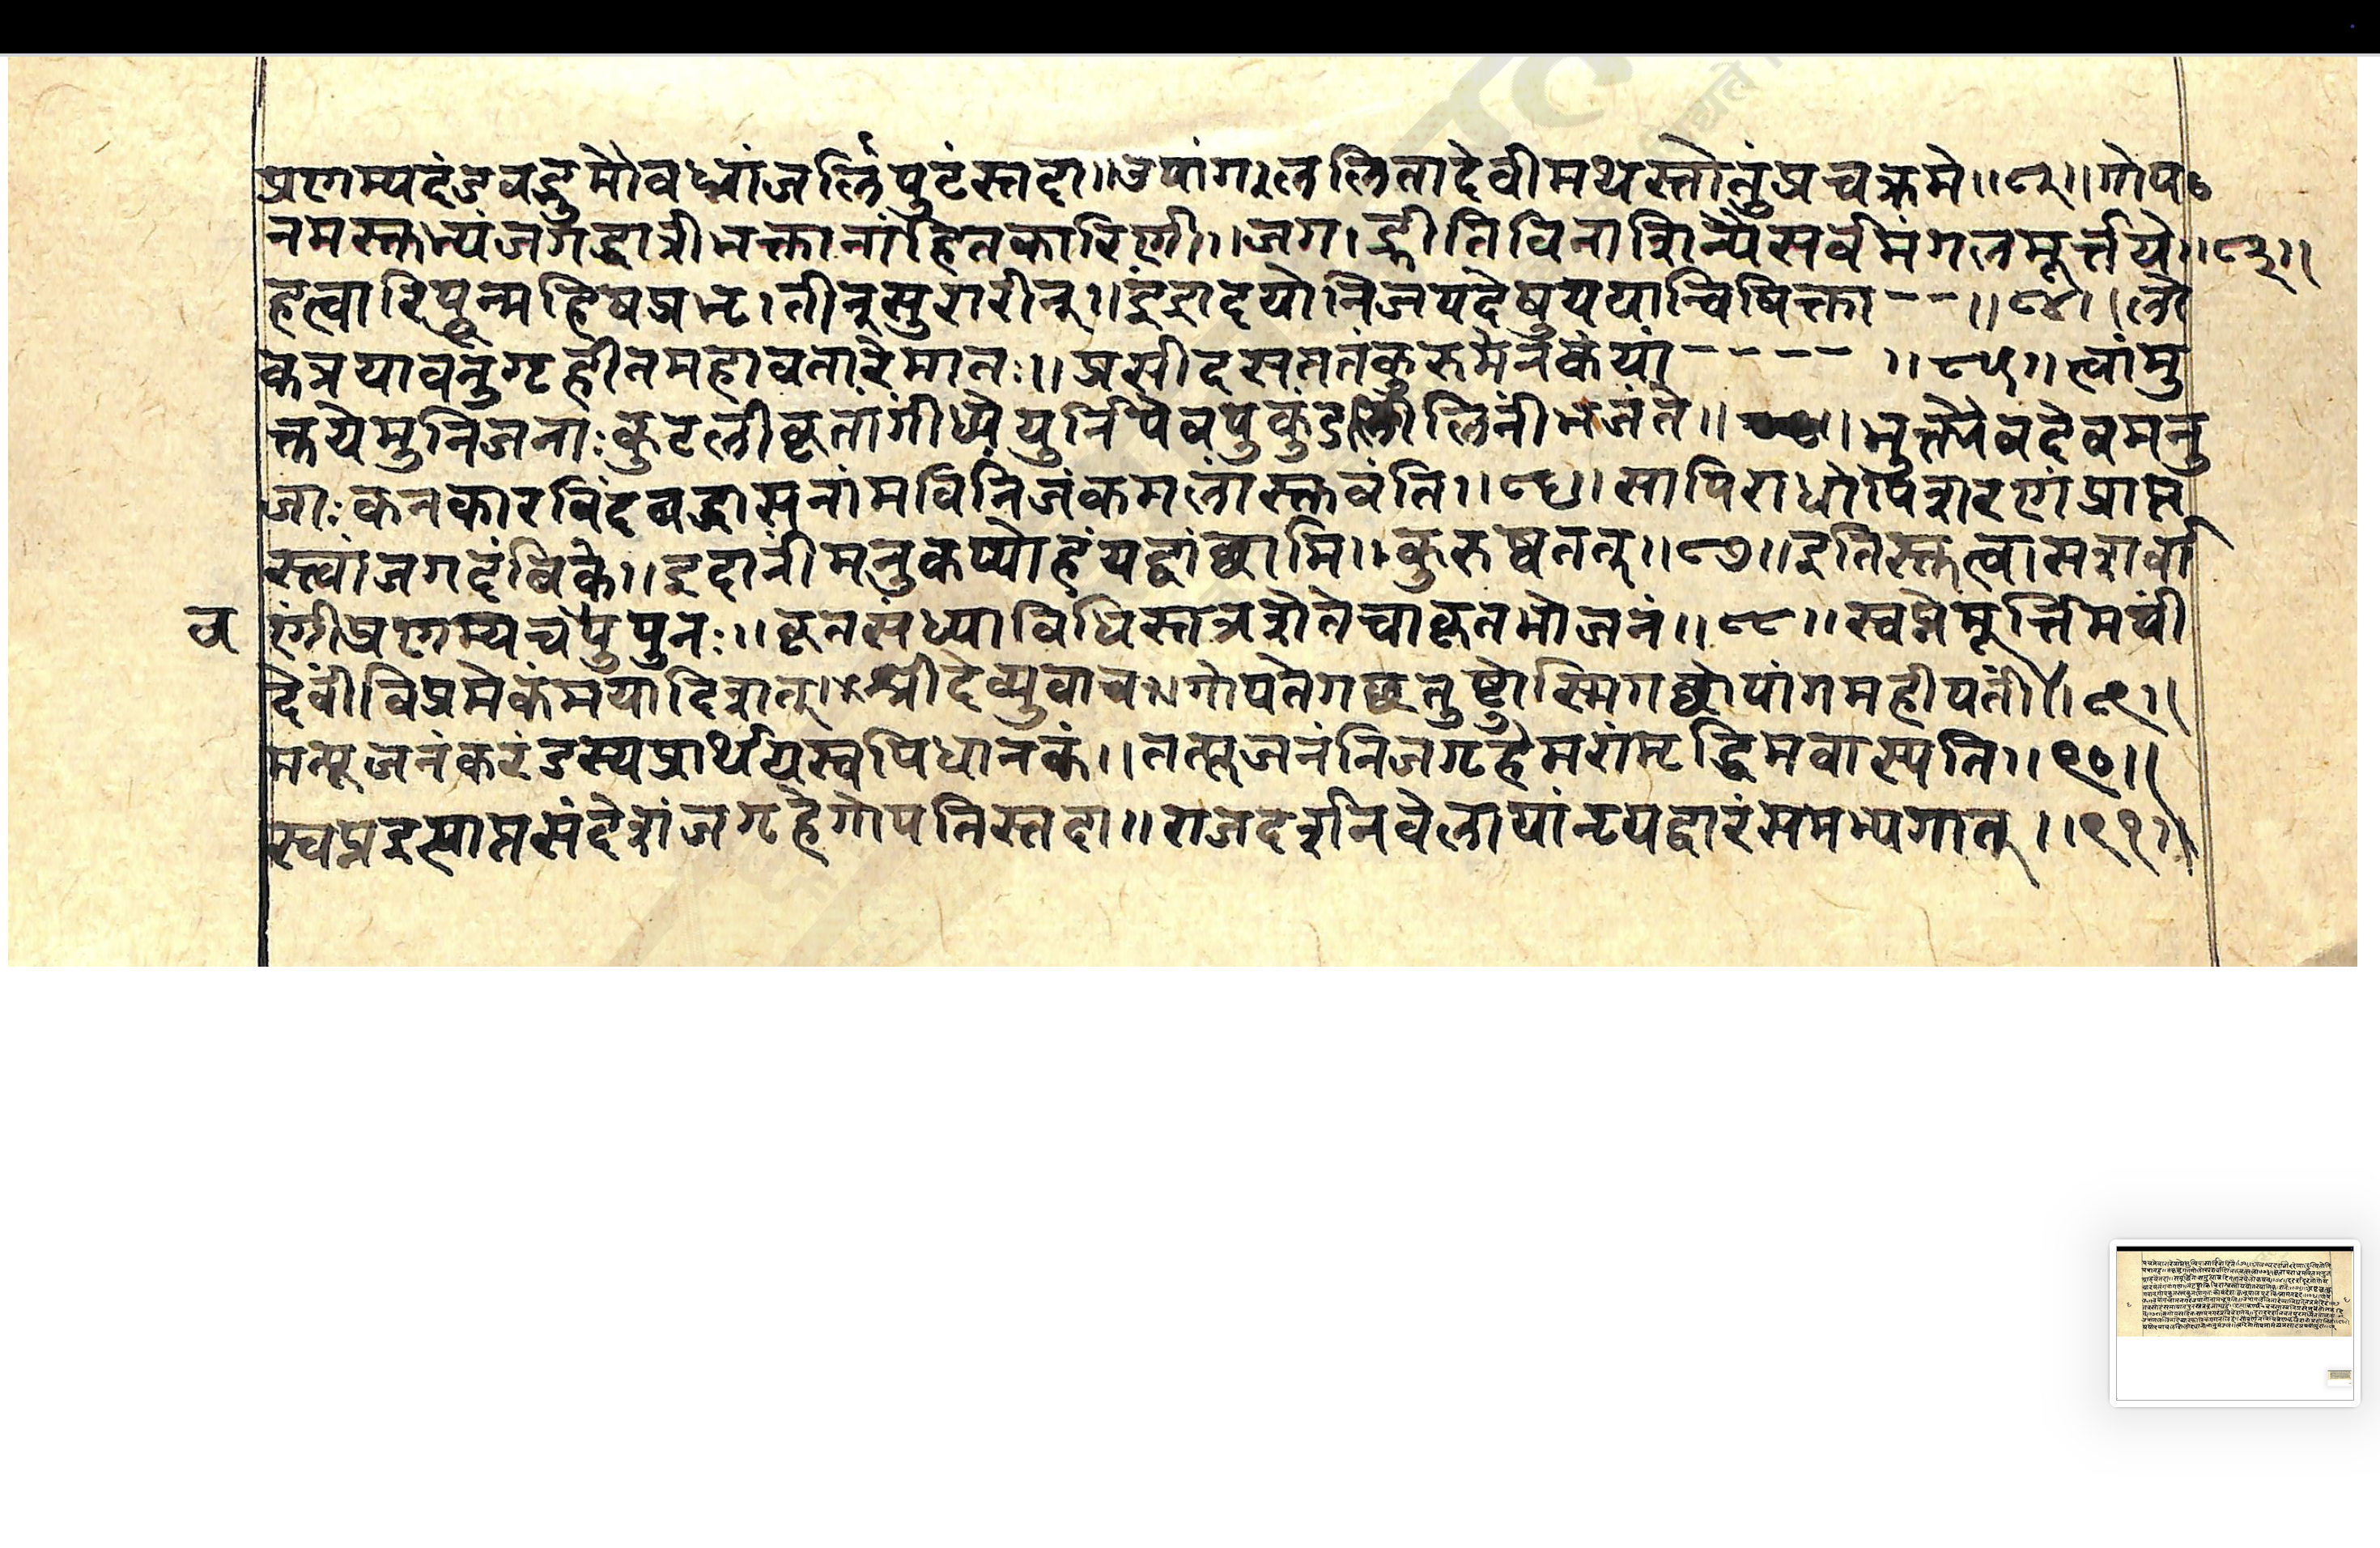 प्रणम्यदंडवद्भूमौवध्वांजलिंपुटंस्तदा॥उपांगाललितादेवीमथस्तोतुंप्रचक्रमे॥८२॥गोप०
नमस्तुभ्यंजगद्धात्रीभक्तानांहितकारिणी॥जगाद्भीतिविनाशिन्यैसर्वमंगलमूर्त्तये॥८३॥
हत्वारिपून्महिषप्रभृातीन्सुरारीन्॥इंद्रादयोनिजपदेषुययान्विषिक्ता--॥८४॥लो
कत्रयावनुगृहीतमहावतारेमातः॥प्रसीदसततंकुरुमेनुकंयां---- ॥८५॥त्वांमु
क्तयेमुनिजनाःकुटलीकृतांगीध्येयुर्निपेवपुकुंड लिनींभजंते॥ ॥भुक्तैरेवदेवमनु
जाःकनकारविंदवद्धासनांमविनिजंकमलांस्तुवंति॥८६॥सापिराधोपिशरणंप्राप्त
स्त्वांजगदंबिके॥इदानीमनुकप्योहंयद्वांछामि॥कुरुष्वतत्॥८७॥इतिस्तुत्वासशर्वा
व
णींप्रणम्यचपुपुनः॥कृतसंध्याविधिस्तत्रशेतेचाकृतभोजनं॥८८॥स्वप्नेमूर्त्तिमयीं
देवींविप्रमेकंमयादिशत्॥श्रीदेव्युवाच॥गोपतेगछतुष्टोस्मिगछोपांगमहीपतीं॥८९॥
मत्पूजनंकरंडस्यप्रार्थयस्वपिधानकं॥तत्पूजनंनिजगृहेमरांमृद्धिमवास्पति॥९०॥
स्वप्नइत्याप्तसंदेशंजगृहेगोपतिस्तदा॥राजदर्शनवेलायांनृपद्वारंसमभ्यगात्॥९१॥